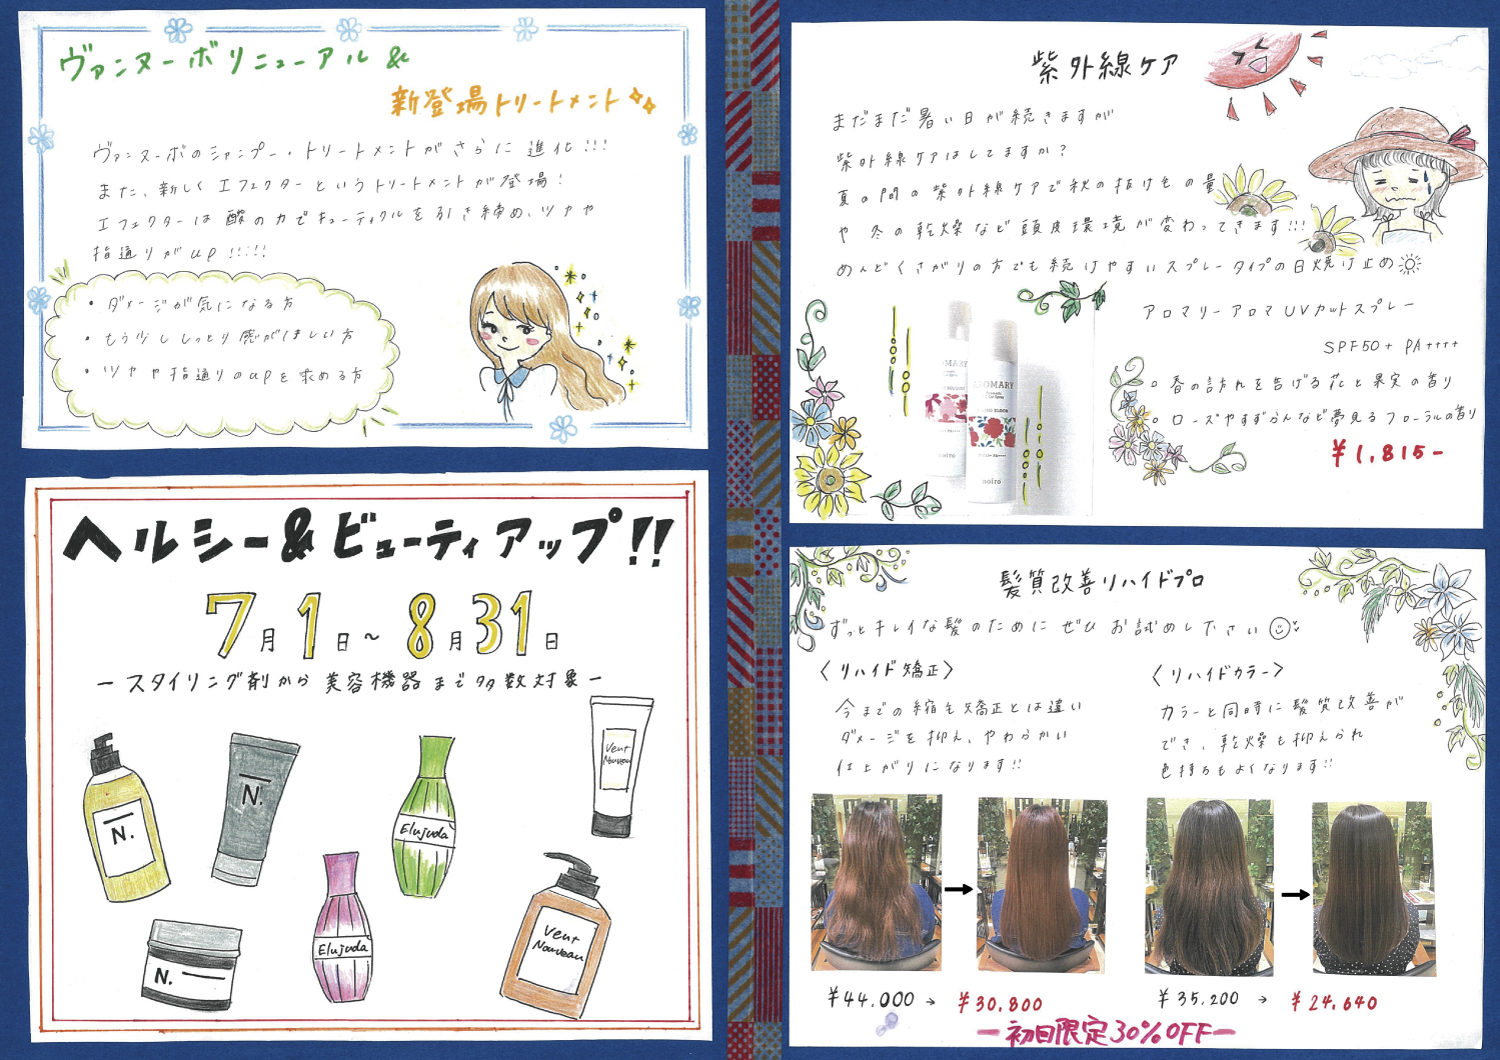 ヴァンヌーボリニューアル&
新登場トリートメント
ヴァンヌーボのシャンプー・トリートメントがさらに進化!!!
また、新しくエフェクターというトリートメントが登場!
エフェクターは酸の力でキューティクルを引き締め、ツヤや
指通りがup!!!!!
・ダメージが気になる方
・もう少ししっとり感がほしい方
・ツヤや指通りのupを求める方
ヘルシー&ビューティアップ!!
7月1日~8月31日
ースタイリング剤から美容機器まで多数対象ー
N.
N.
Elujuda
Vent
Nouveau
N.
Elujuda
Vent
Nouveau
紫外線ケア
まだまだ暑い日が続きますが
紫外線ケアはしてますか?
夏の間の紫外線ケアで秋の抜け毛の量
や冬の乾燥など頭皮環境が変わってきます!!!
めんどくさがりの方でも続けやすいスプレータイプの日焼け止め
アロマリーアロマUVカットスプレー
SPF50+ PA++++
○春の訪れを告げる花と果実の香り
○ローズやすずらんなど夢見るフローラルの香り
¥1,815-
AROMARY
noiro
noiro
髪質改善リハイドプロ
ずっとキレイな髪のためにぜひお試め し下さい
〈リハイド矯正〉
今までの縮毛矯正とは違い
ダメージを抑え、やわらかい
仕上がりになります!!
〈リハイドカラー〉
カラーと同時に髪質改善が
でき、乾燥も抑えられ
色持ちもよくなります!!
¥44.000→¥30.800
¥35.200→¥24.640
ー初回限定30%OFFー